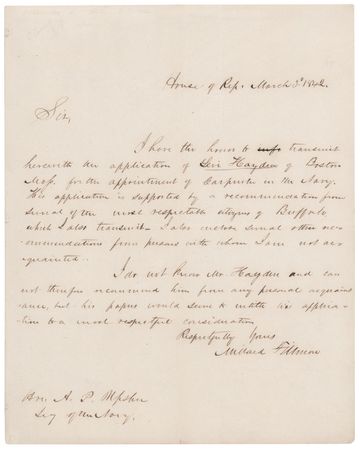 House of Reps. March 3d 1842.
Sir,
I have the honor to transmit
herewith the application of Levi Hayden of Boston
Mass. for the appointment of Carpenter in the Navy.
His application is supported by a recommendation from
several of the most respectable citizens of Buffalo
which I also transmit. I also enclose several other rec-
ommendations from persons with whom I am not ac-
quainted.
I do not know Mr. Hayden and can
not therefore recommend him from any personal acquaint-
ance, but his papers would seem to entitle his applica-
tion to a most respectful consideration
Respectfully Yours
Millard Fillmore
Hon. A. P. Upshur
Secy of the Navy.